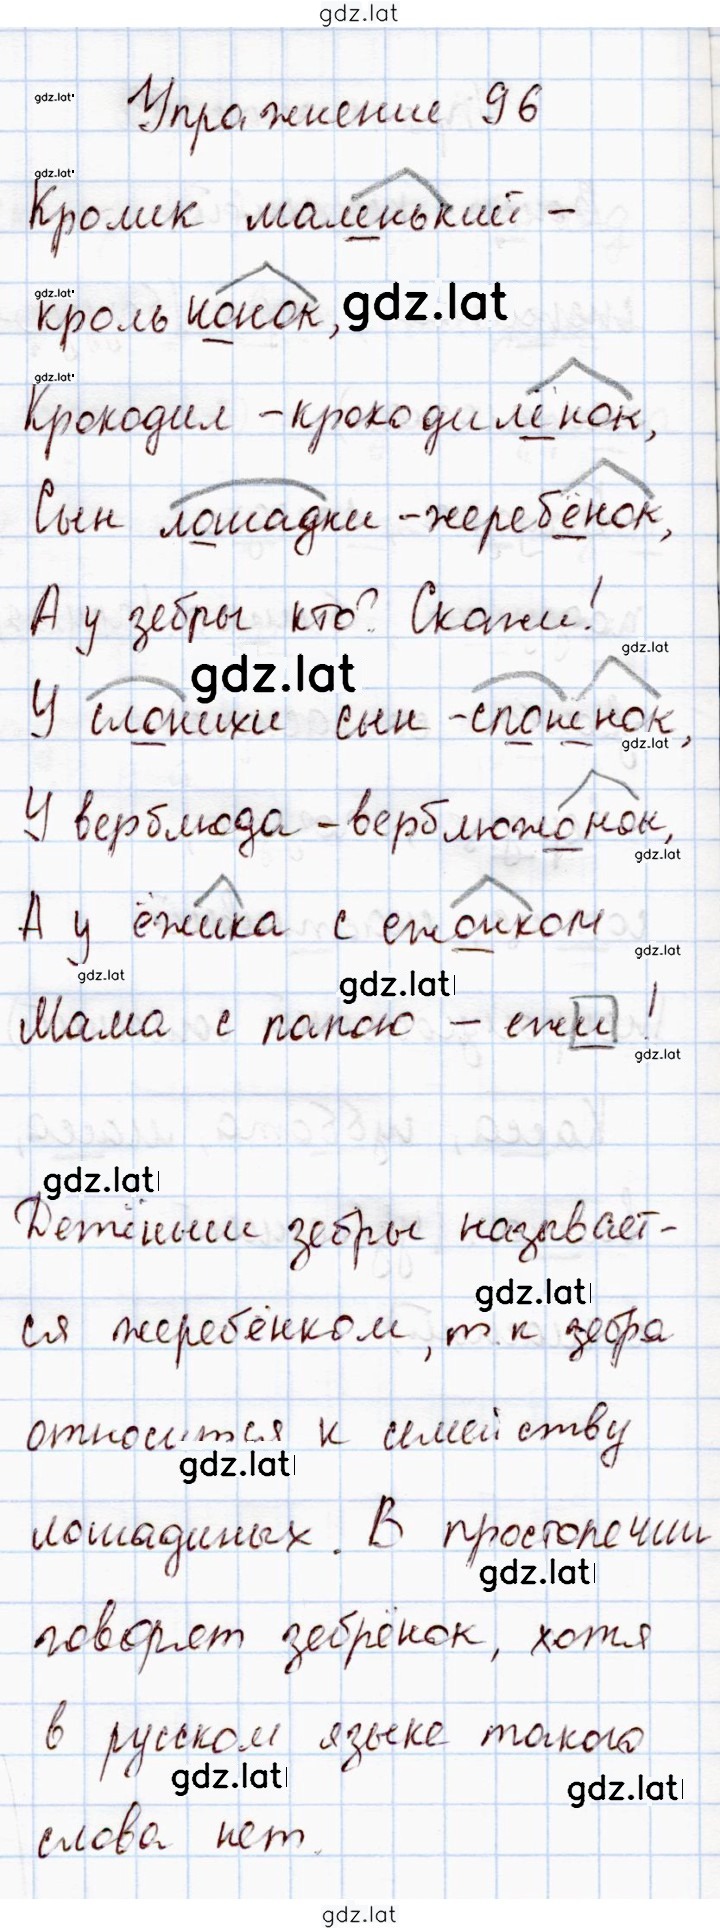 gdz.lat
gdz.lat
Упражнение 96
gdz.lat
Кролик маленький –
gdz.lat
крольчонок, gdz.lat
gdz.lat
Крокодил – крокодилёнок,
Сын лошадки – жеребёнок,
А у зебры кто? Скажи!
gdz.lat
gdz.lat
У слонихи сын – слонёнок,
gdz.lat
У верблюда – верблюжонок,
gdz.lat
А у ёжика с ежонком
gdz.lat
gdz.lat
gdz.lat
Мама с папою – ежи!
gdz.lat
gdz.lat
Детёныш зебры называет-
gdz.lat
ся жеребёнком, т.к зебра
относится к семейству
gdz.lat
лошадиных. В просторечии
gdz.lat
говорят зебрёнок, хотя
в русском языке такого
gdz.lat
gdz.lat
слова нет.
gdz.lat